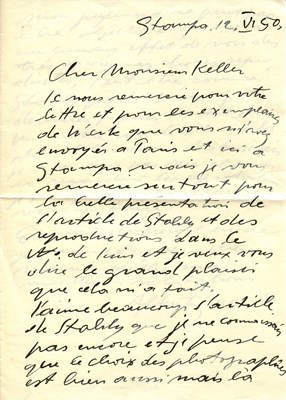 Stampa. 12. VI 50.
Cher Monsieur Keller
Je vous remercie pour votre
lettre et pour les exemplaires
de Werk que vous m'avez
envoyés à Paris et ici à
Stampa mais je vous
remercie surtout pour
la belle présentation de
l'article de Stahly et des
reproductions dans le
No. de Juin et je veux vous
dire le grand plaisir
que cela m'a fait.
J'aime beaucoup l'article
de Stahly que je ne connaissais
pas encore et je pense
que le choix des photographies
est bien aussi mais la